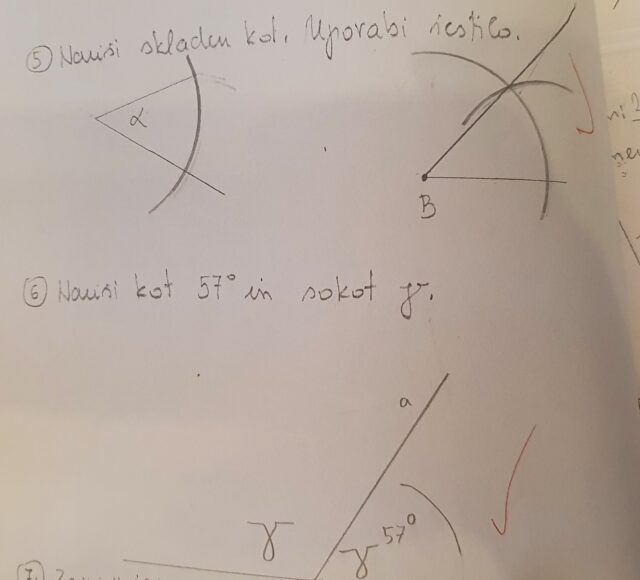 5 Nariši skladen kot. Uporabi šestilo.
α
B
6 Nariši kot 57° in sokot γ.
a
γ
γ 57°
7.